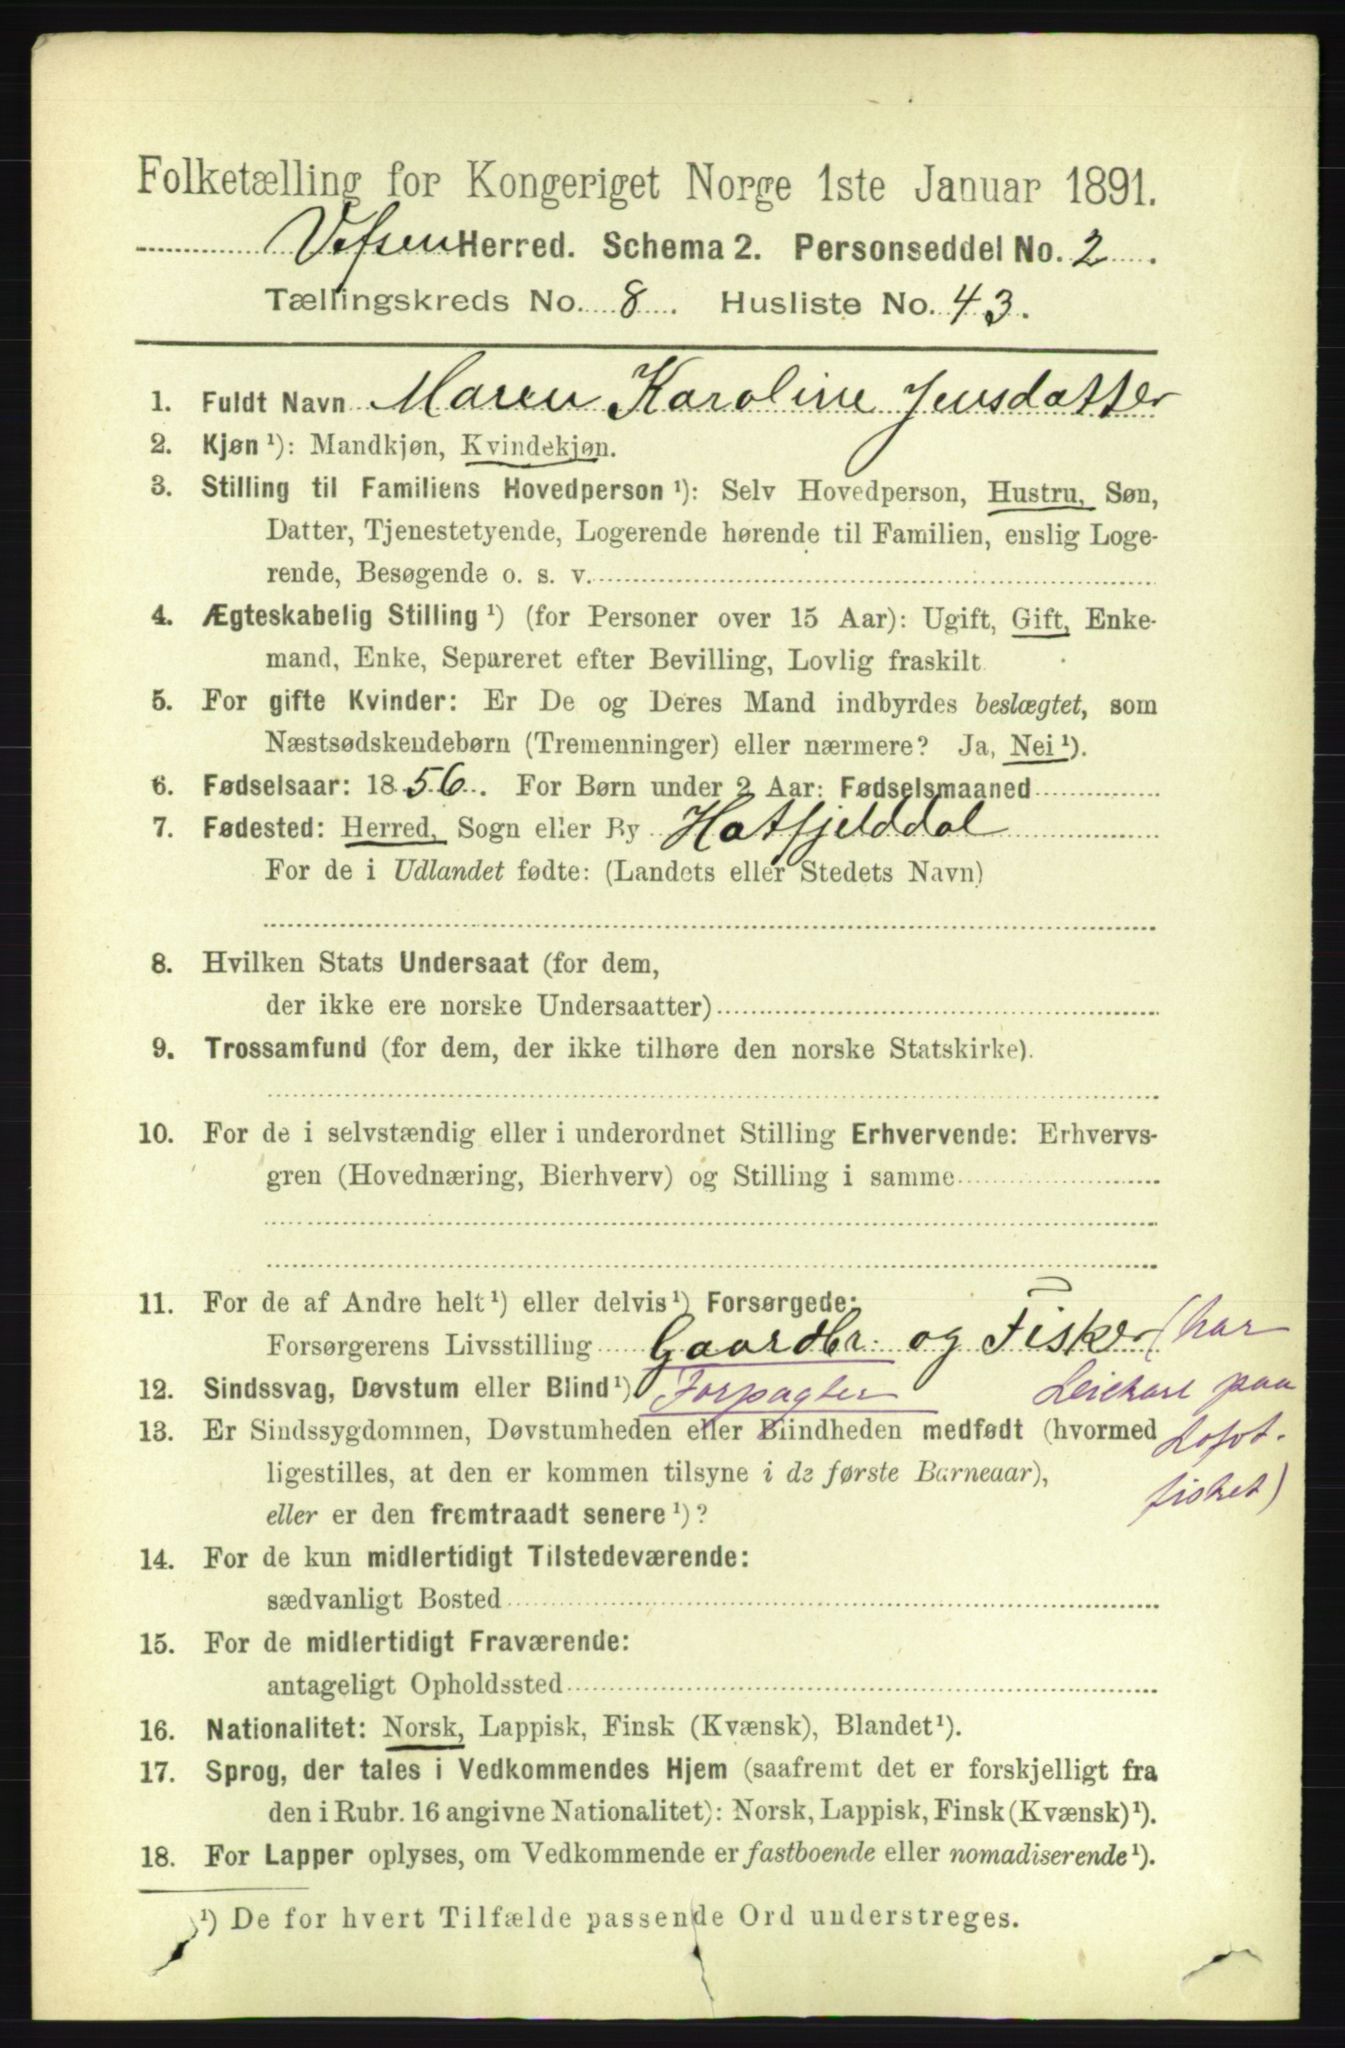 Folketælling for Kongeriget Norge 1ste Januar 1891.
Vefsen Herred. Schema 2. Personseddel No. 2.
Tællingskreds No. 8. Husliste No. 43.
1. Fuldt Navn Maren Karoline Jensdatter
2. Kjøn ¹): Mandkjøn, Kvindekjøn.
3. Stilling til Familiens Hovedperson ¹): Selv Hovedperson, Hustru, Søn,
Datter, Tjenestetyende, Logerende hørende til Familien, enslig Loge-
rende, Besøgende o. s. v.
4. Ægteskabelig Stilling ¹) (for Personer over 15 Aar): Ugift, Gift, Enke-
mand, Enke, Separeret efter Bevilling, Lovlig fraskilt
5. For gifte Kvinder: Er De og Deres Mand indbyrdes beslægtet, som
Næstsødskendebørn (Tremenninger) eller nærmere? Ja, Nei ¹).
6. Fødselsaar: 1856. For Børn under 2 Aar: Fødselsmaaned
7. Fødested: Herred, Sogn eller By Hatfjelddal
For de i Udlandet fødte: (Landets eller Stedets Navn)
8. Hvilken Stats Undersaat (for dem,
der ikke ere norske Undersaatter)
9. Trossamfund (for dem, der ikke tilhøre den norske Statskirke).
10. For de i selvstændig eller i underordnet Stilling Erhvervende: Erhvervs-
gren (Hovednæring, Bierhverv) og Stilling i samme
11. For de af Andre helt ¹) eller delvis ¹) Forsørgede:
Forsørgerens Livsstilling Gaardbr. og Fisker (har
12. Sindssvag, Døvstum eller Blind ¹) Forpagter paa
13. Er Sindssygdommen, Døvstumheden eller Blindheden medfødt (hvormed Lofot-
ligestilles, at den er kommen tilsyne i de første Barneaar), fisket)
eller er den fremtraadt senere ¹)?
14. For de kun midlertidigt Tilstedeværende:
sædvanligt Bosted
15. For de midlertidigt Fraværende:
antageligt Opholdssted
16. Nationalitet: Norsk, Lappisk, Finsk (Kvænsk), Blandet ¹).
17. Sprog, der tales i Vedkommendes Hjem (saafremt det er forskjelligt fra
den i Rubr. 16 angivne Nationalitet): Norsk, Lappisk, Finsk (Kvænsk) ¹).
18. For Lapper oplyses, om Vedkommende er fastboende eller nomadiserende ¹).
¹) De for hvert Tilfælde passende Ord understreges.